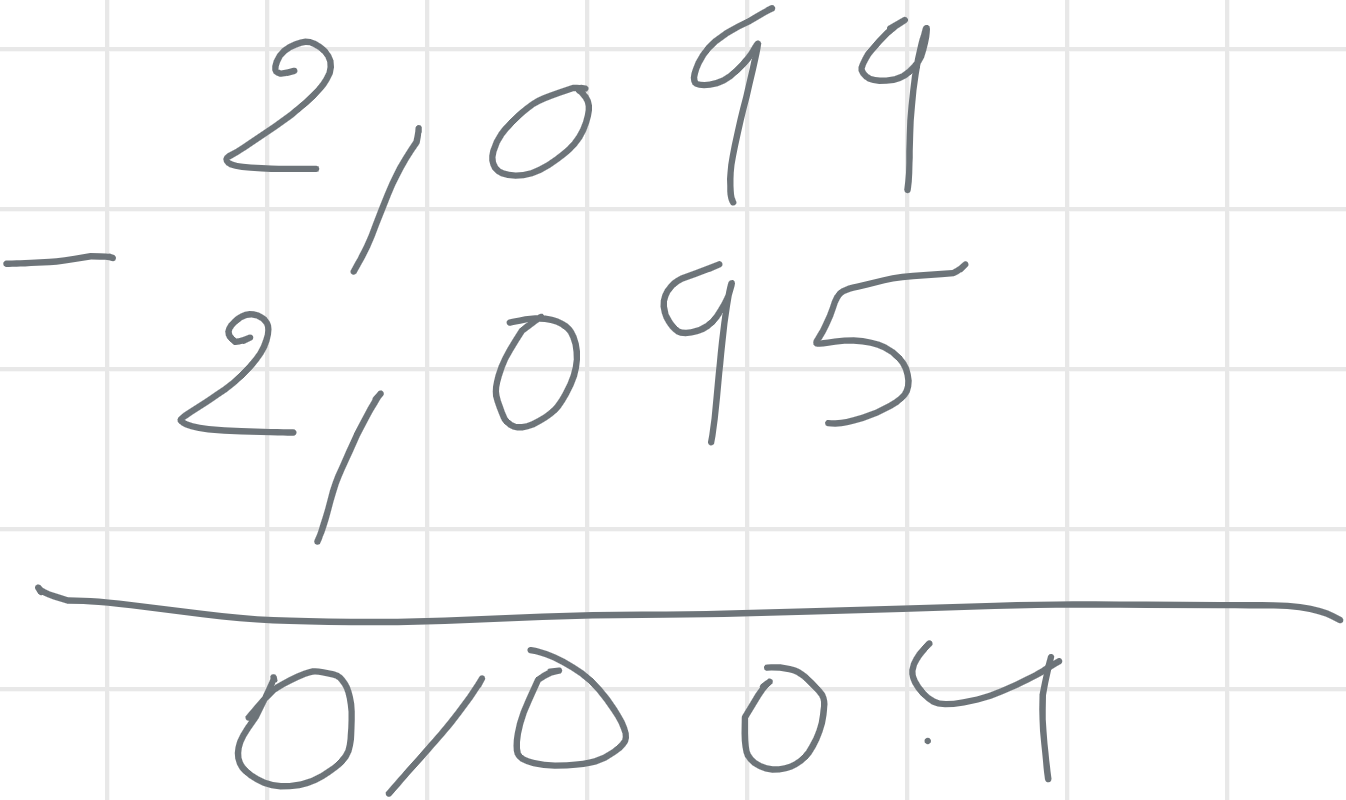 2,099
-
2,095
0,004